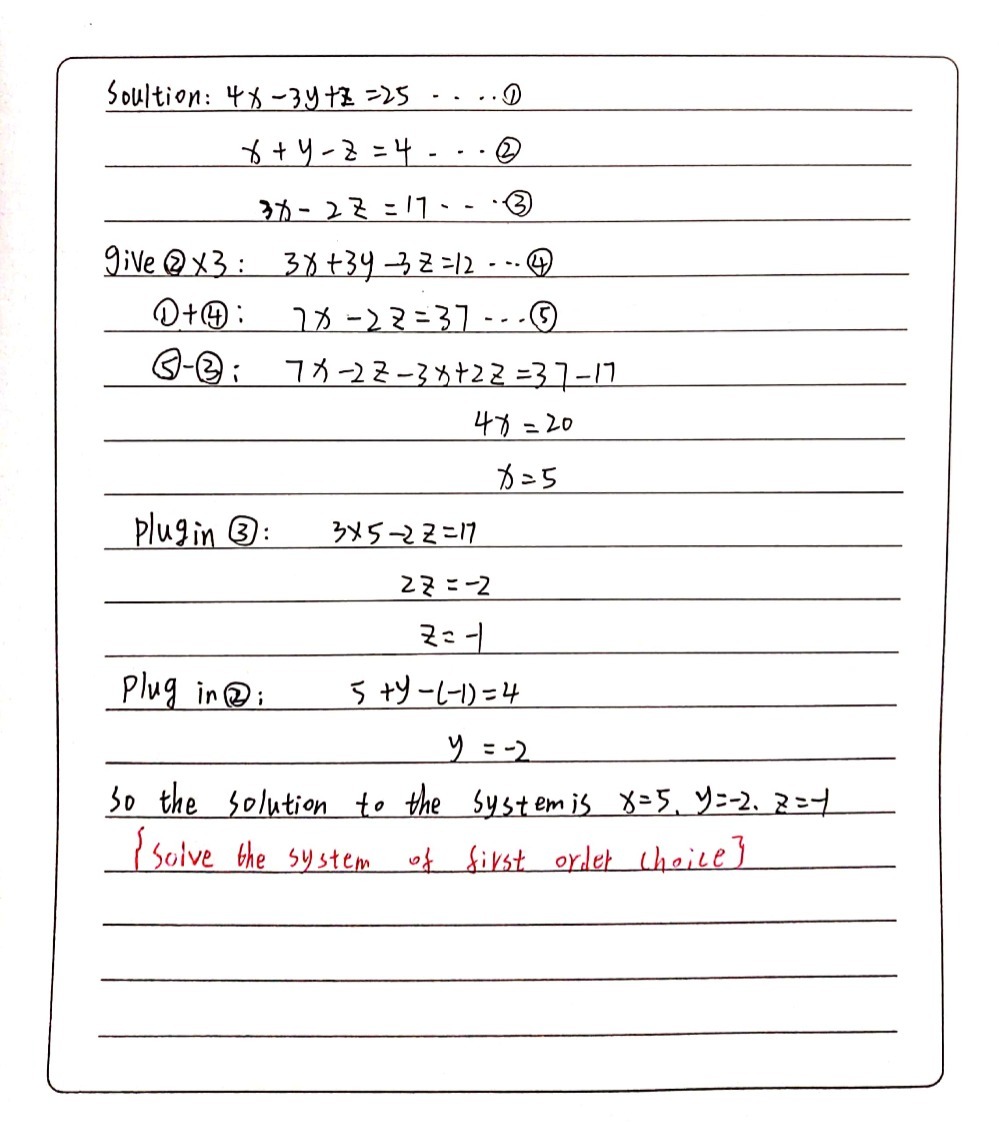 Soultion: 4x-3y+z=25 - - ... ①
x+y-z=4 - - - ②
3x-2z=17 - - · ③
give ②×3: 3x+3y-3z=12 --- ④
①+④: 7x-2z=37 --- ⑤
⑤-③: 7x-2z-3x+2z=37-17
4x=20
x=5
plug in ③: 3×5-2z=17
2z=-2
z=-1
Plug in ②: 5+y-(-1)=4
y=-2
So the solution to the system is x=5. y=-2. z=-1
{Solve the system of first order choice}